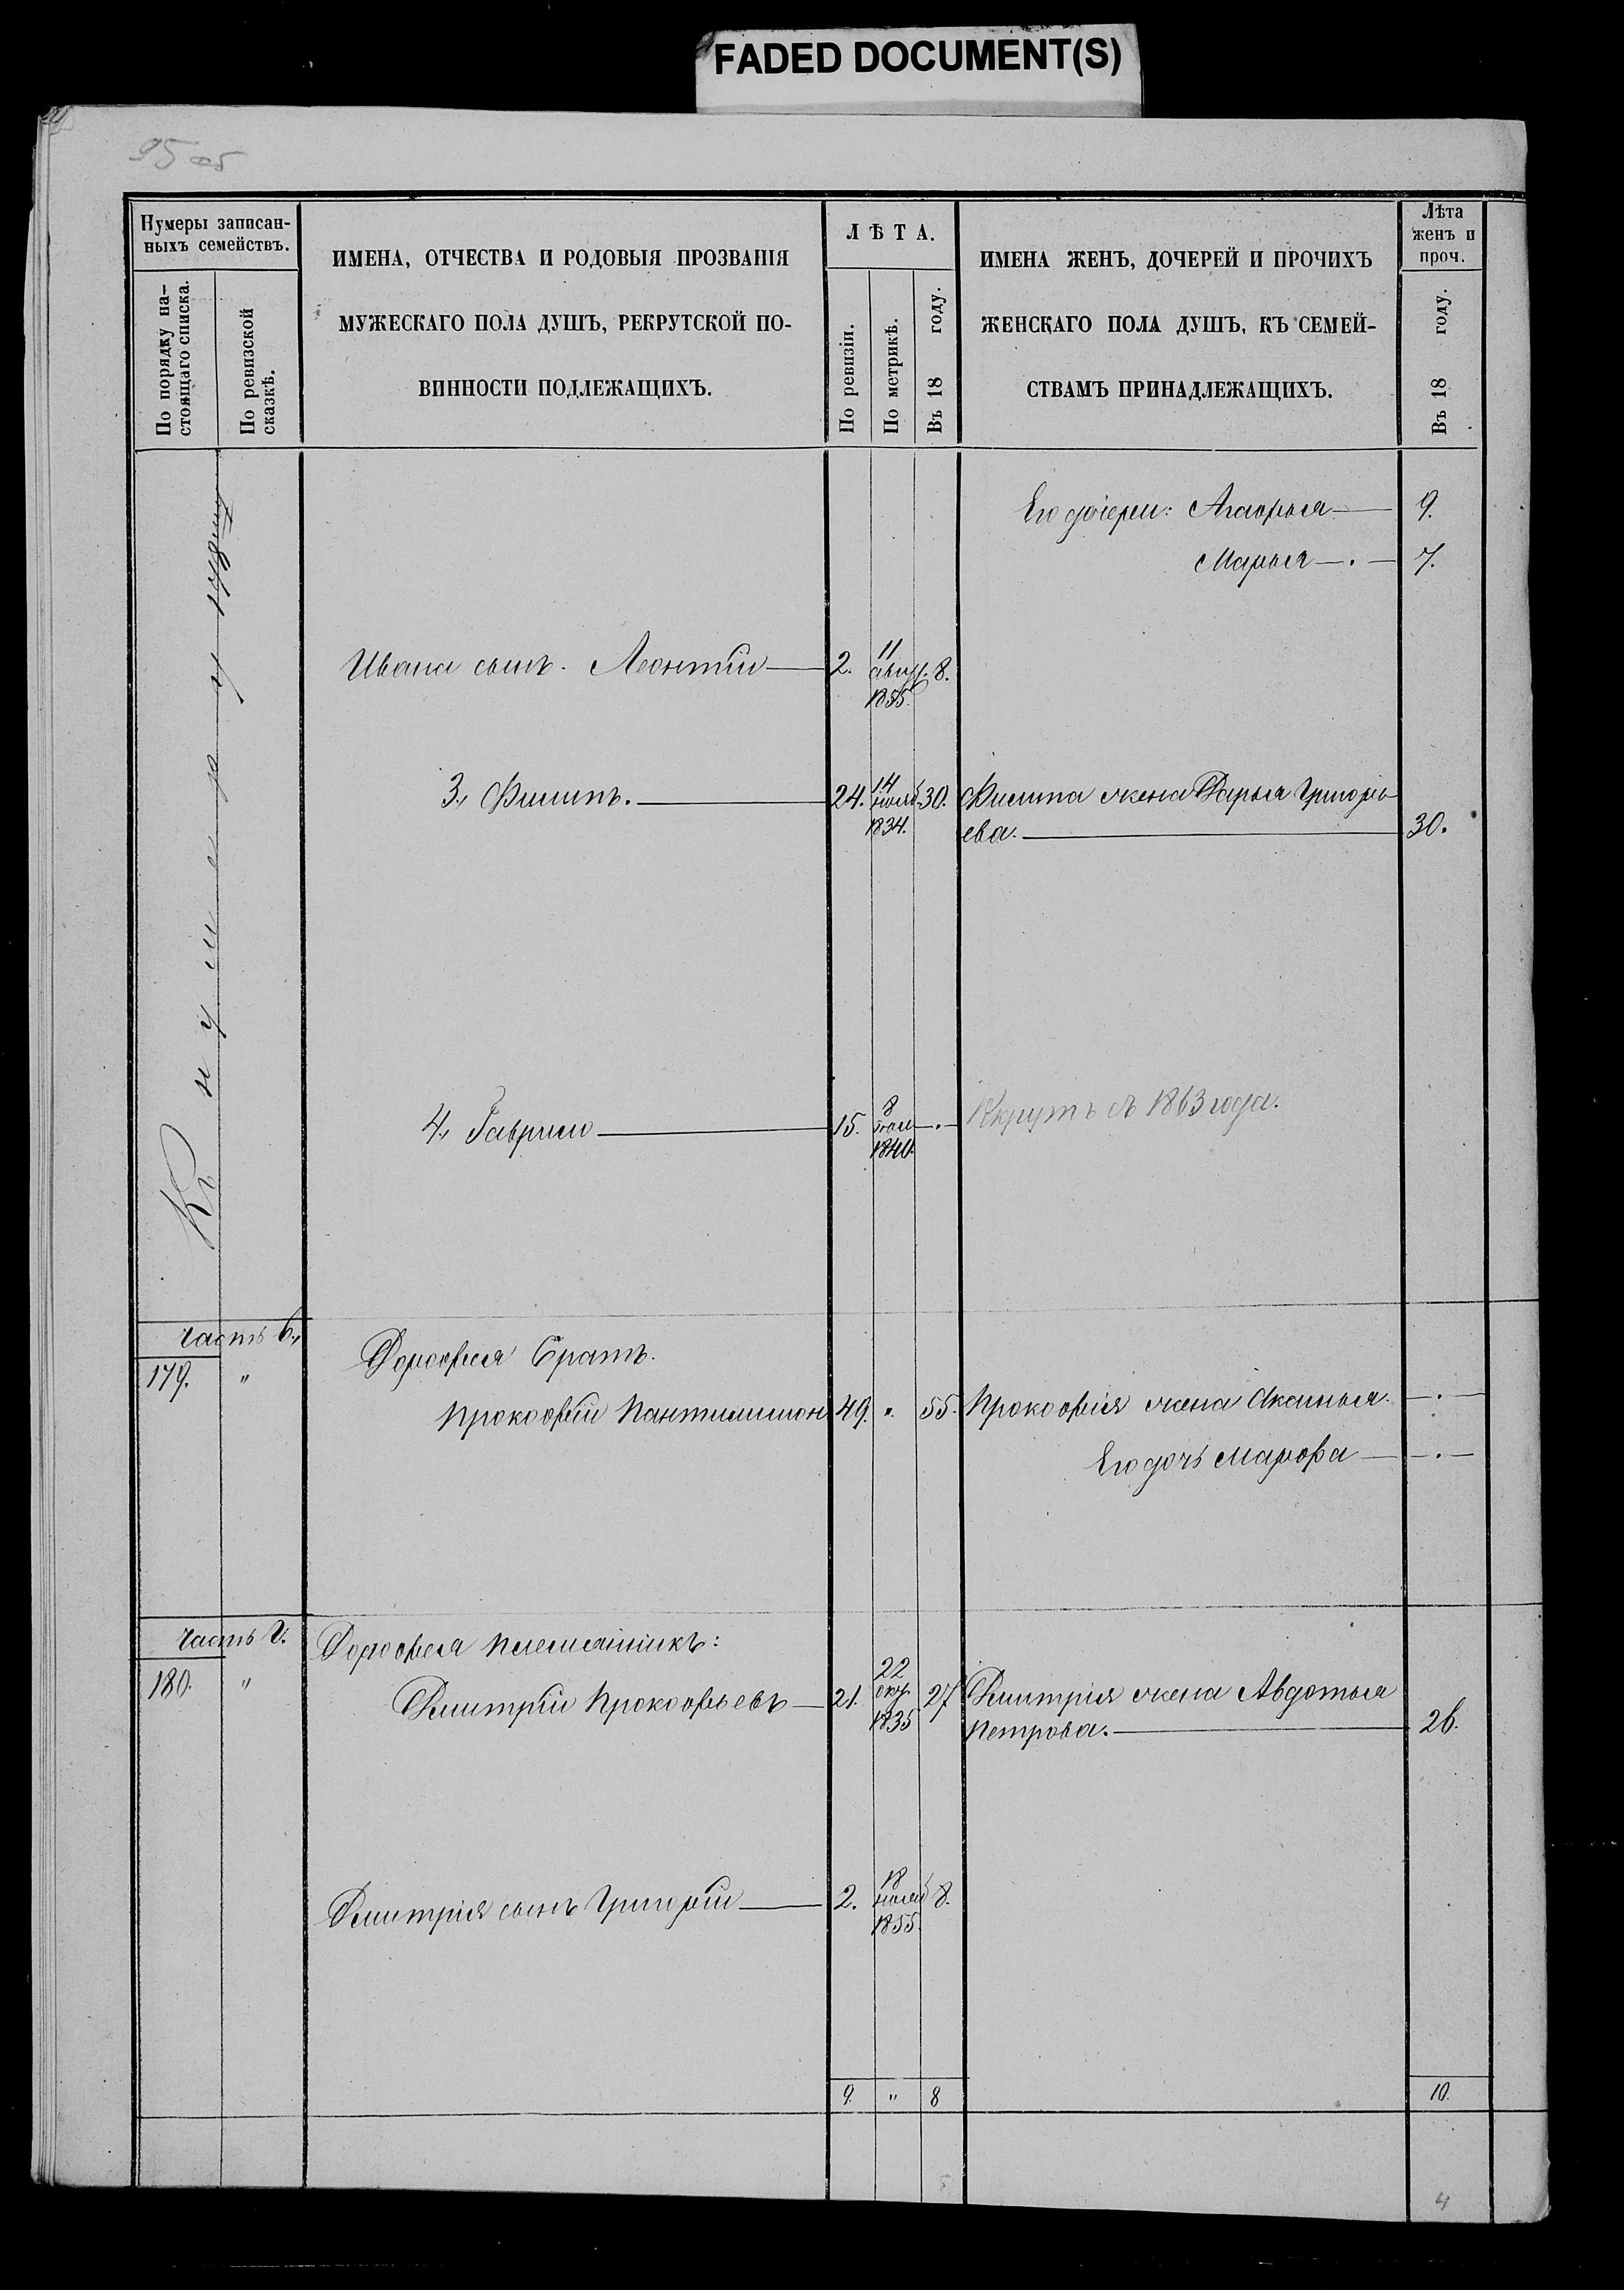 FADED DOCUMENT(S)
95 об
Нумеры записан-
ныхъ семействъ.
По порядку на-
стоящаго списка.
По ревизской
сказкѣ.
ИМЕНА, ОТЧЕСТВА И РОДОВЫЯ ПРОЗВАНІЯ
МУЖЕСКАГО ПОЛА ДУШЪ, РЕКРУТСКОЙ ПО-
ВИННОСТИ ПОДЛЕЖАЩИХЪ.
ЛѢТА.
По ревизіи.
По метрикѣ.
Въ 18 году.
ИМЕНА ЖЕНЪ, ДОЧЕРЕЙ И ПРОЧИХЪ
ЖЕНСКАГО ПОЛА ДУШЪ, КЪ СЕМЕЙ-
СТВАМЪ ПРИНАДЛЕЖАЩИХЪ.
Лѣта
женъ и
проч.
Въ 18 году.
Къ нумеру 178му
Его дочери: Агафья 9.
Марья 7.
Ивана сынъ. Леонтій 2. 11 авгу. 1855. 8.
3., Филипъ. 24. 14 нояб. 1834. 30. Филипа жена Дарья Григорь-
ева. 30.
4., Гаврило 15. 8
Рекрутъ съ 1863 года.
часть б.,
179. " Дорофея братъ.
Прокофій Пантилимон 49. " 55. Прокофія жена Аксинья.
Его дочь Марфа
часть
180. " Дорофея племянникъ:
Дмитрій Прокофьевъ 21. 22 окт. 1835 27 Дмитрія жена Авдотья
Петрова. 26.
Дмитрія сынъ Григорій 2. 18 нояб 1855. 8.
9. " 8 10.
5 4